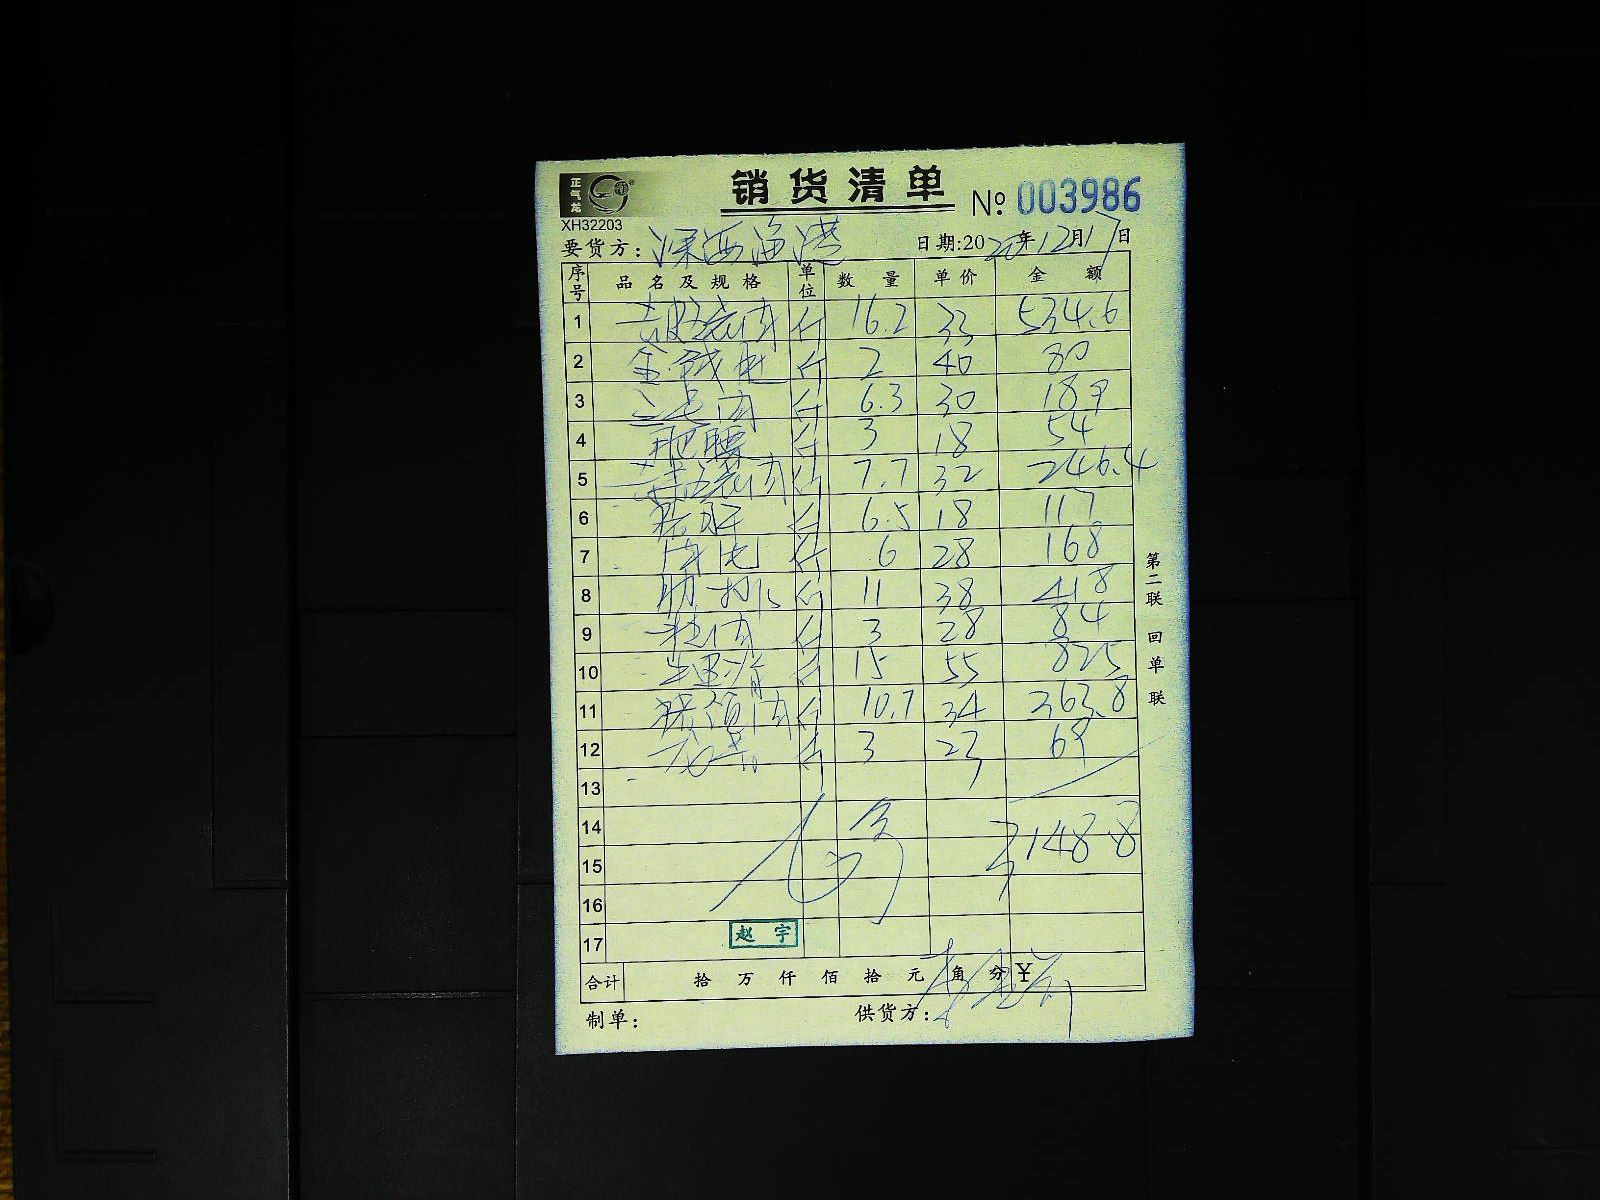 正气龙
XH32203
销货清单 № 003986
要货方: 深海渔港 日期:2020年12月17日
序号 品名及规格 单位 数量 单价 金额
1 去皮 肉 斤 16.2 33 534.6
2 金钱 斤 2 40 80
3 肉 斤 6.3 30 189
4 肥腰 斤 3 18 54
5 肉 斤 7.7 32 246.4
6 猪肝 斤 6.5 18 117
7 斤 6 28 168
8 肋排 斤 11 38 418
9 肉 斤 3 28 84
10 斤 15 55 825
11 猪颈肉 斤 10.7 34 363.8
12 斤 3 23 69
13
14 3148.8
15
16
17 赵宇
合计 拾 万 仟 佰 拾 元 角 分 ¥
制单: 供货方:
第二联 回单联